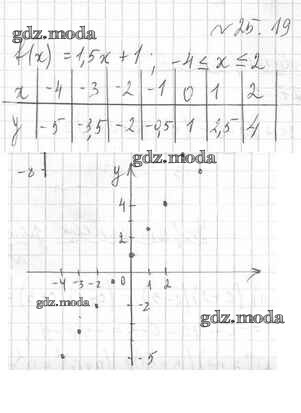 № 25. 19
gdz.moda
f(x) = 1,5x + 1 ; -4 ≤ x ≤ 2
x | -4 | -3 | -2 | -1 | 0 | 1 | 2
y | -5 | -3,5 | -2 | -0,5 | 1 | 2,5 | 4
gdz.moda
-2
y
4
2
-4 -3 -2 0 1 2
gdz.moda
-2
gdz.moda
-5